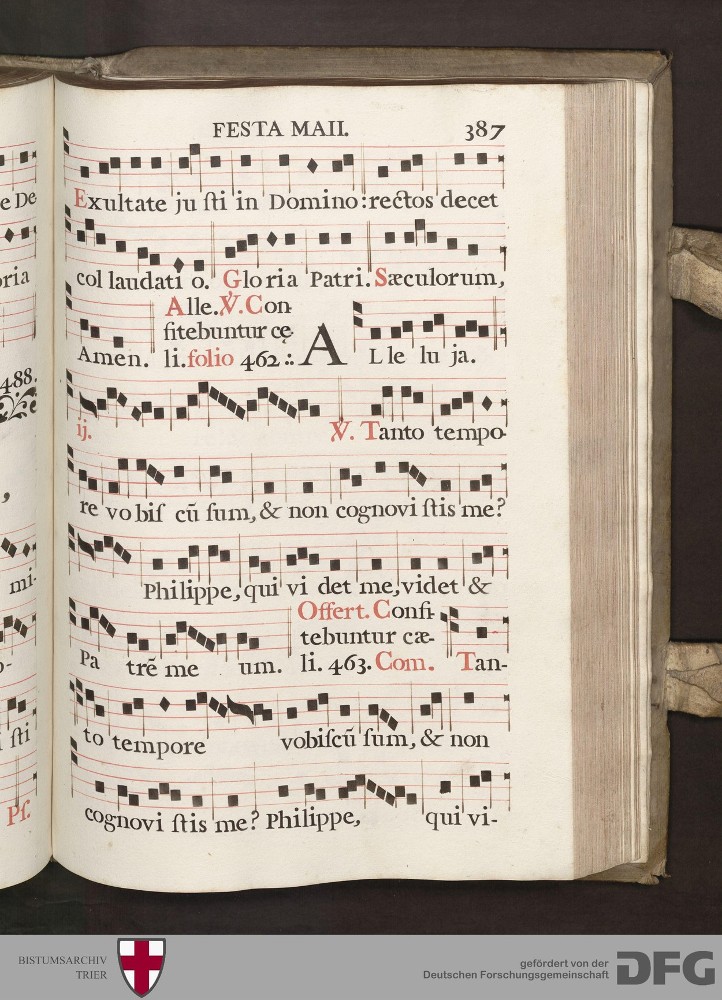 FESTA MAII. 387
Exultate ju sti in Domino: rectos decet
col laudati o. Gloria Patri. Sæculorum,
Alle. ℣. Con
fitebuntur cę
Amen. li. folio 462 .:. A L le lu ja.
ij. ℣. Tanto tempo-
re vo bis cū sum, & non cognovi stis me?
Philippe, qui vi det me, videt &
Offert. Confi-
tebuntur cæ-
Pa trē me um. li. 463. Com. Tan-
to tempore vobiscū sum, & non
cognovi stis me? Philippe, qui vi-
e De-
oria
488.
mi-
i sti
Ps.
BISTUMSARCHIV
TRIER
gefördert von der
Deutschen Forschungsgemeinschaft
DFG